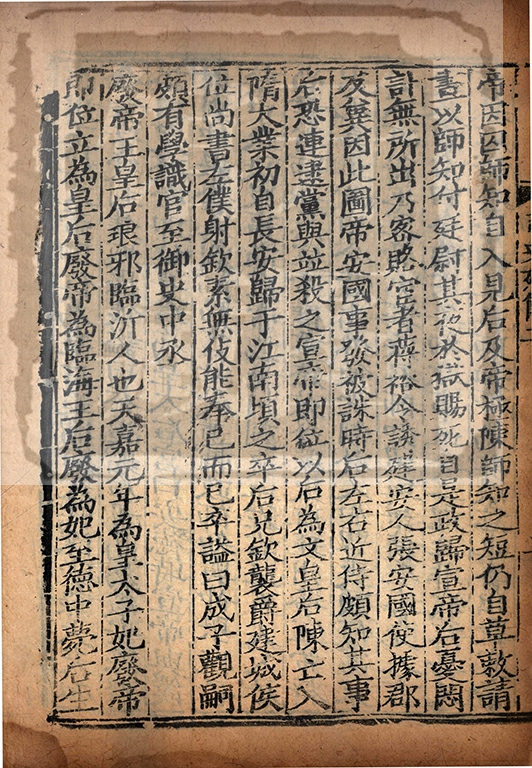 帝因囚師知自入見后及帝極陳師知之短仍自草敕請
畫以師知付廷尉其夜於獄賜死自是政歸宣帝后憂悶
計無所出乃密賂宦者蔣裕令誘建安人張安國使據郡
反冀因此圖帝安國事發被誅時后左右近侍頗知其事
后恐連逮黨與並殺之宣帝即位以后為文皇后陳亡入
隋大業初自長安歸于江南頃之卒后兄欽襲爵建城侯
位尚書左僕射欽素無伎能奉己而已卒謚曰成子觀嗣
頗有學識官至御史中丞
廢帝王皇后琅邪臨沂人也天嘉元年為皇太子妃廢帝
即位立為皇后廢帝為臨海王后廢為妃至德中薨后生